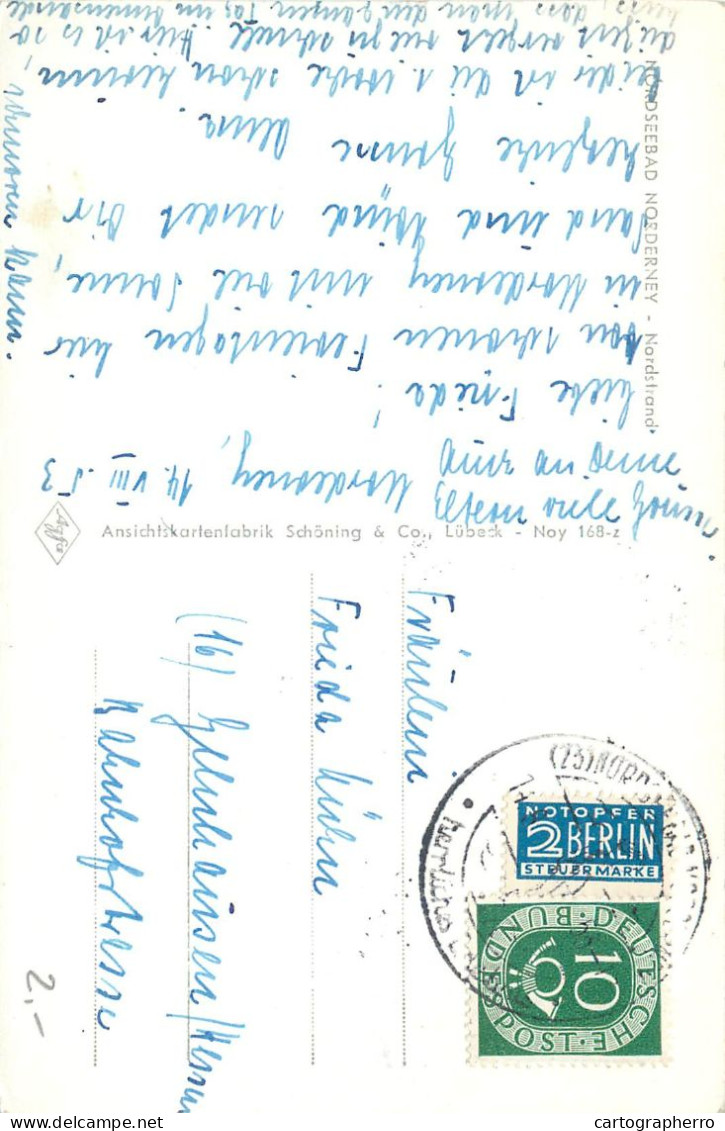 NORDSEEBAD NORDERNEY - Nordstrand
Norderney, 14. VIII. 53
Liebe Frieda!
Von schönen Ferientagen hier
in Norderney mit viel Sonne,
Sand und Wind sendet Dir
herzliche Grüsse Anna.
Leider ist die 1. Woche schon herum
Hier ist es so
heiss, dass man den ganzen Tag im
kann.
Agfa
Ansichtskartenfabrik Schöning & Co., Lübeck - Noy 168-z
Fräulein
Frieda Kühn
(16) Gelnhausen/Hessen
Bahnhofstrasse
NOTOPFER
2 BERLIN
STEUERMARKE
DEUTSCHE BUNDESPOST
10
2,-
cartographerro